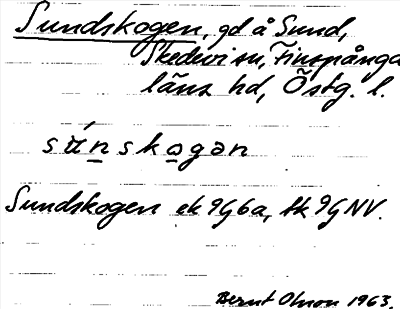 Sundskogen, gd å Sund,
Skedevi sn, Finspånga
läns hd, Östg. l.
sún skogən
Sundskogen ek 9G6a, tk 9G NV.
Bernt Olsson 1963.